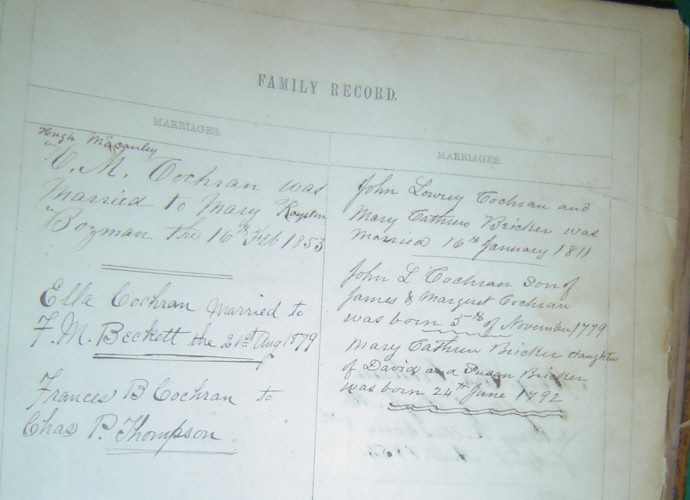 FAMILY RECORD.
MARRIAGES.
Hugh Macauley
H. M. Cochran was
Married to Mary Royston
Bozman the 16th Feb 1853
Ella Cochran Married to
F. M. Beckett the 21st Aug 1879
Frances B Cochran to
Chas P. Thompson
MARRIAGES.
John Lowrey Cochran and
Mary Cathren Bricker was
Married 16th January 1811
John L Cochran Son of
James & Margret Cochran
was born 5th of November 1779
Mary Cathren Bricker daughter
of David and Susan Bricker
was born 24th June 1792